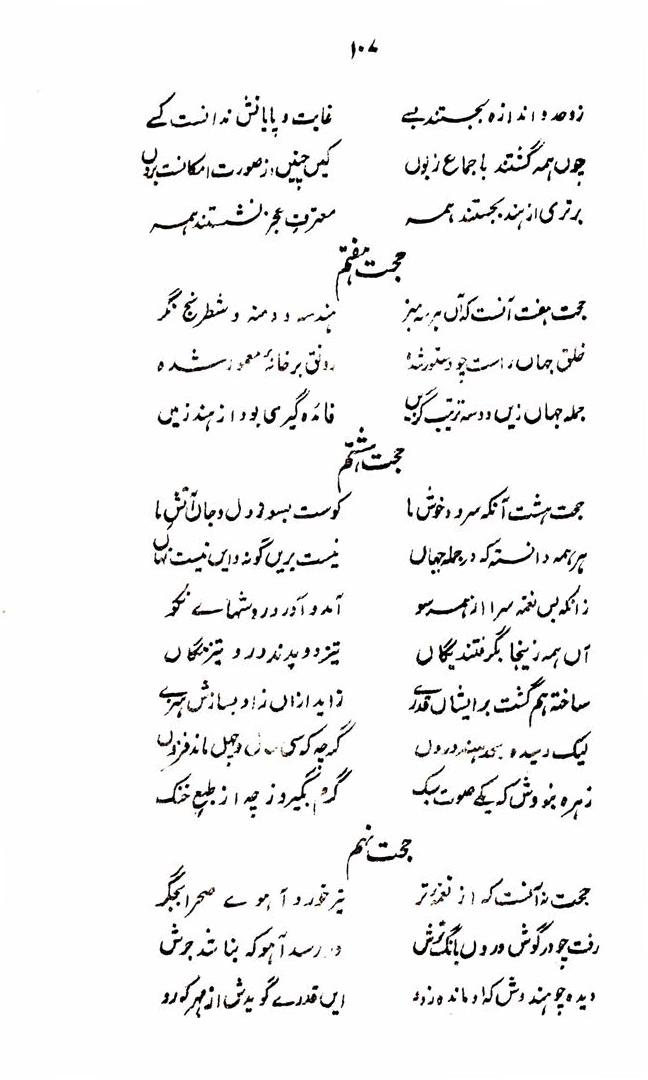 ۱۰۷
زو حد و اندازه بجستند بسے غایت و پایانش ندانست کسے
چوں ہمہ گشتند باجماع زبوں کیں چنیں از صورت امکانست بروں
برتری از ہند بجستند ہمہ معترف عجز نشستند ہمہ
حجت ہفتم
حجت ہفت آنست کہ آں ہندسہ و دمنہ و شطرنج نگر
خلق جہاں راست چو دستور شدہ رونق ہر خانۂ معمور شدہ
جملہ جہاں زیں دو سہ ترتیب گزیں فائدہ گیری بود از ہند زمیں
حجت ہشتم
حجت ہشت آنکہ سرود خوش ما کوست بسوز دل و جاں آتش ما
ہر ہمہ دانستہ کہ در جملہ جہاں نیست بریں گونہ و ایں نیست نہاں
زانکہ بس نغمہ سرا از ہمہ سو آمد و آورد روشہاے نکو
آں ہمہ زینجا بگرفتند یگاں تیز دویدند درو تیزتگاں
ساختہ ہم گشت بر ایشاں قدرے زاید ازاں زاد بسازش ہنرے
لیک رسیدہ بحد ہند دروں گرچہ کسی سال و چہل ماند فزوں
زہرہ بنودش کہ یکے صوت سبک گرم بگیرد ز چہ از طبع خنک
حجت نہم
حجت نہ آنست کہ از نغمۂ تر تیر خورد آہوے صحرا بجگر
رفت چو در گوش دروں بانگ ترش در رسد آہو کہ بناشد جرش
دیدہ چو ہندوش کہ ماندہ زدو ایں قدرے گویدش از مہر کہ رو